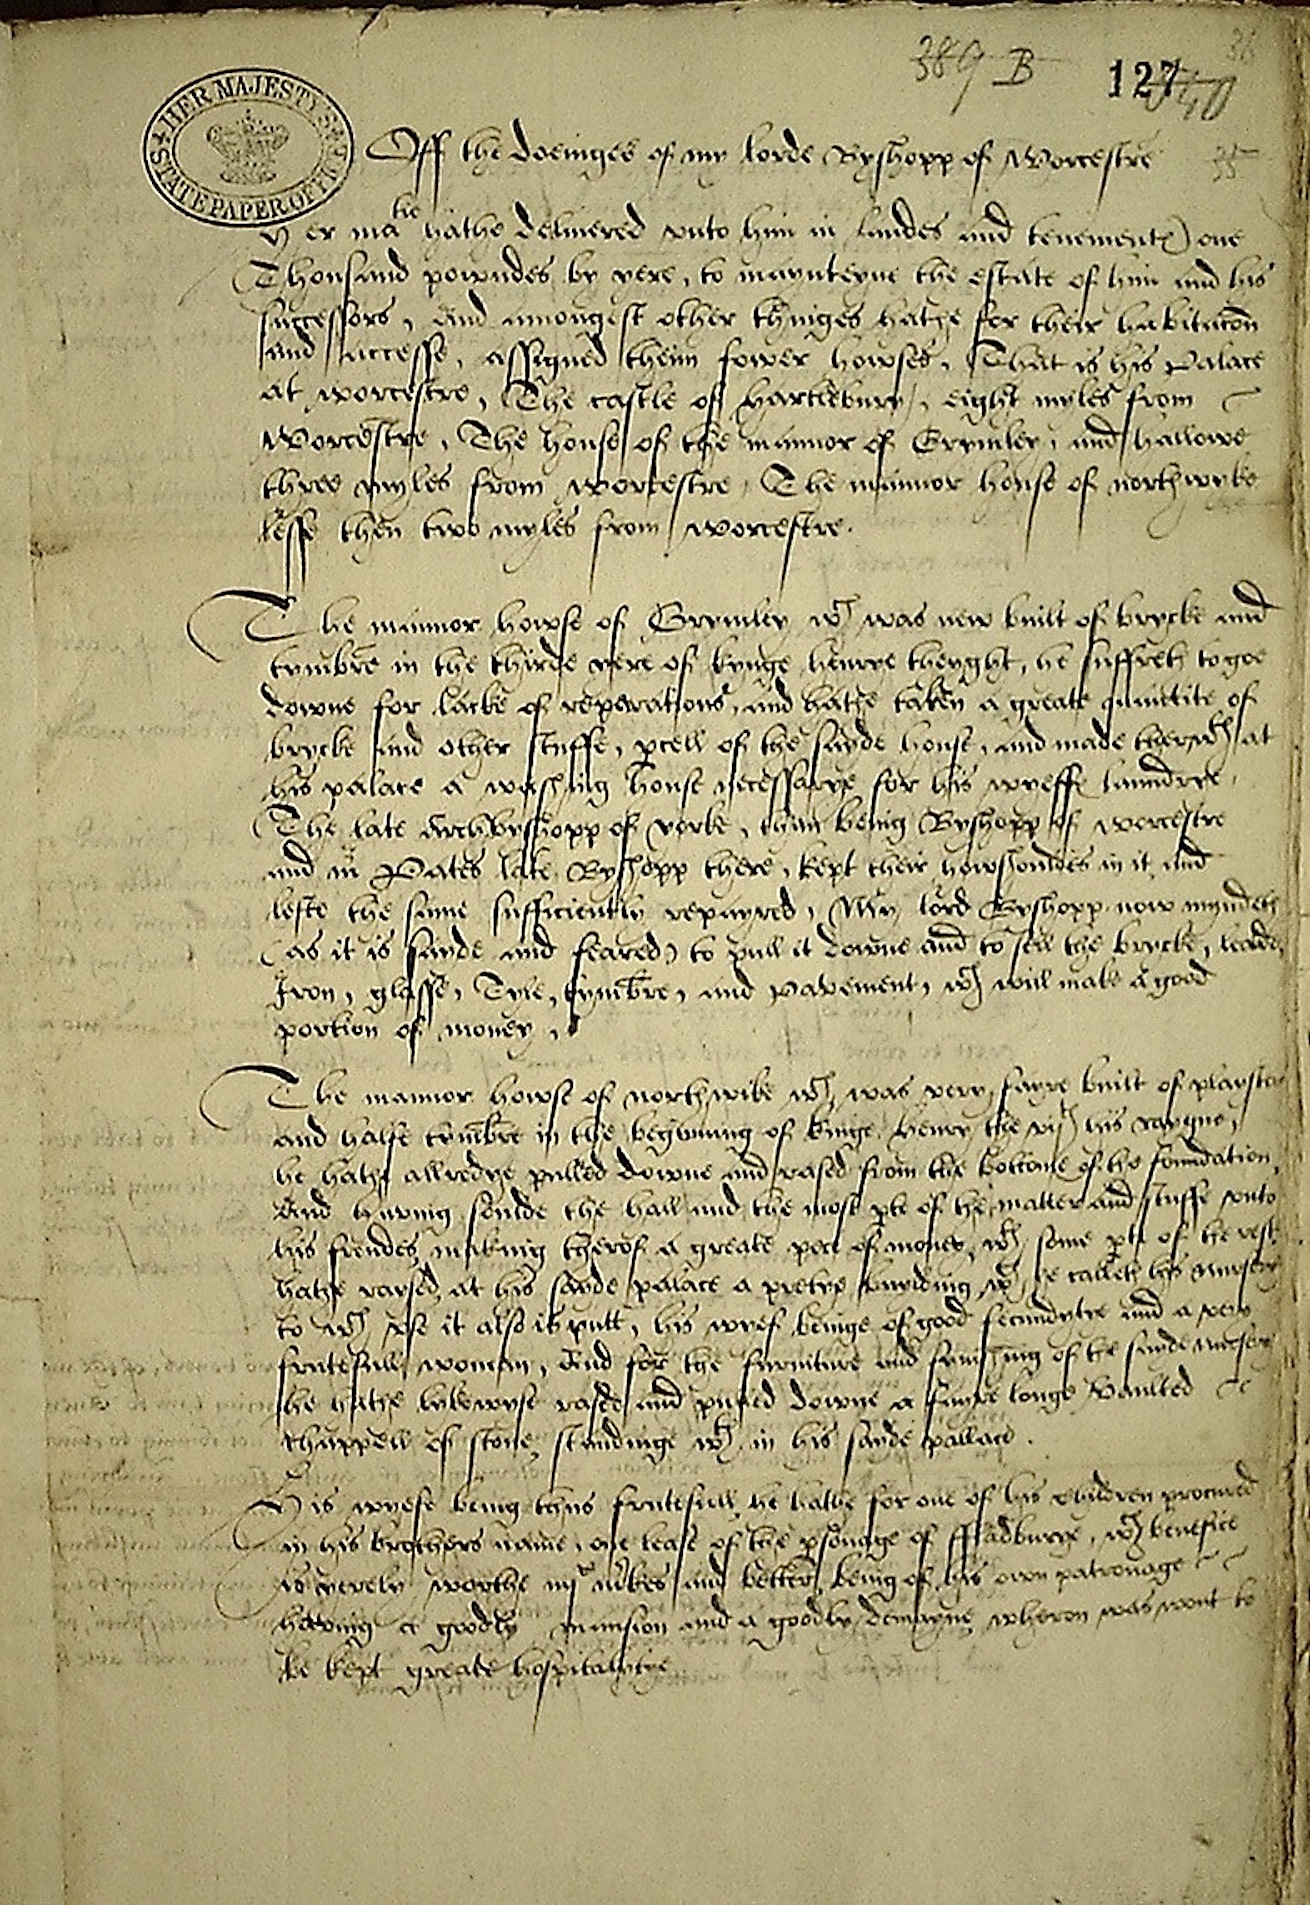 389 B 127 140 36
HER MAJESTY'S STATE PAPER OFFICE
Off the doeinges of my lorde Byshopp of Worcestre 35
Her ma^tie hathe delivered vnto him in landes and tenementes one
Thousand powndes by yere, to maynteyne the estate of him and his
successors, And amongest other thinges hathe for their habitacon
and accesse, assigned theim fower howses, That is his Palace
at worcestre, The castle of Hartlebury, eight myles from
Worcestre, The house of the mannor of Grymley, and hallowe
three myles from worcestre, The mannor house of northwyke
lesse then two myles from worcestre.
The mannor howse of Grymley w^ch was new built of brycke and
tymbre in the thirde yere of kynge henrye theyght, he suffreth to goe
downe for lacke of reparations, and hathe taken a greate quantite of
brycke and other stuffe, pcell of the sayde house, and made therw^th at
his palace a washing house necessarye for his wyffe laundrye,
The late Archbyshopp of yorke, than being Byshopp of worcestre
and m^r Pates late Byshopp there, kept their howshouldes in it and
lefte the same sufficiently repayred, My lord Byshopp now myndeth
(as it is sayde and feared) to pull it downe and to sell the brycke, leade,
Iron, glasse, Tyle, tymbre, and Pavement, w^ch will make a good
portion of money,
The mannor howse of northwike w^ch was very fayre built of playster
and halfe tymbre in the begynning of kinge Henry the vij^th his raygne,
he hathe allredye pulled downe and rased from the bottome of the foundation,
And having soulde the hall and the most pte of the matter and stuffe vnto
his frendes, making therof a greate pece of money, w^th some pte of the rest
hathe raysed at his sayde palace a pretye buylding w^ch he calleth his nursery
to w^ch vse it also is putt, his wyef beinge of good fecundytye and a very
frutefull woman, And for the furniture and finishing of the saide nursery
he hathe lykewyse rased and pulled downe a fayre longe Vaulted
chappell of stone, standinge w^th in his sayde pallace.
His wyefe being thus frutefull, he hathe for one of his children procured
in his brothers name, one lease of the psonage of ffladburye, w^ch benefice
is yerely worthe iiij^c mkes and better, being of his own patronage
having a goodly mansion and a goodly demayne wheron was wont to
be kept greate hospitalytye